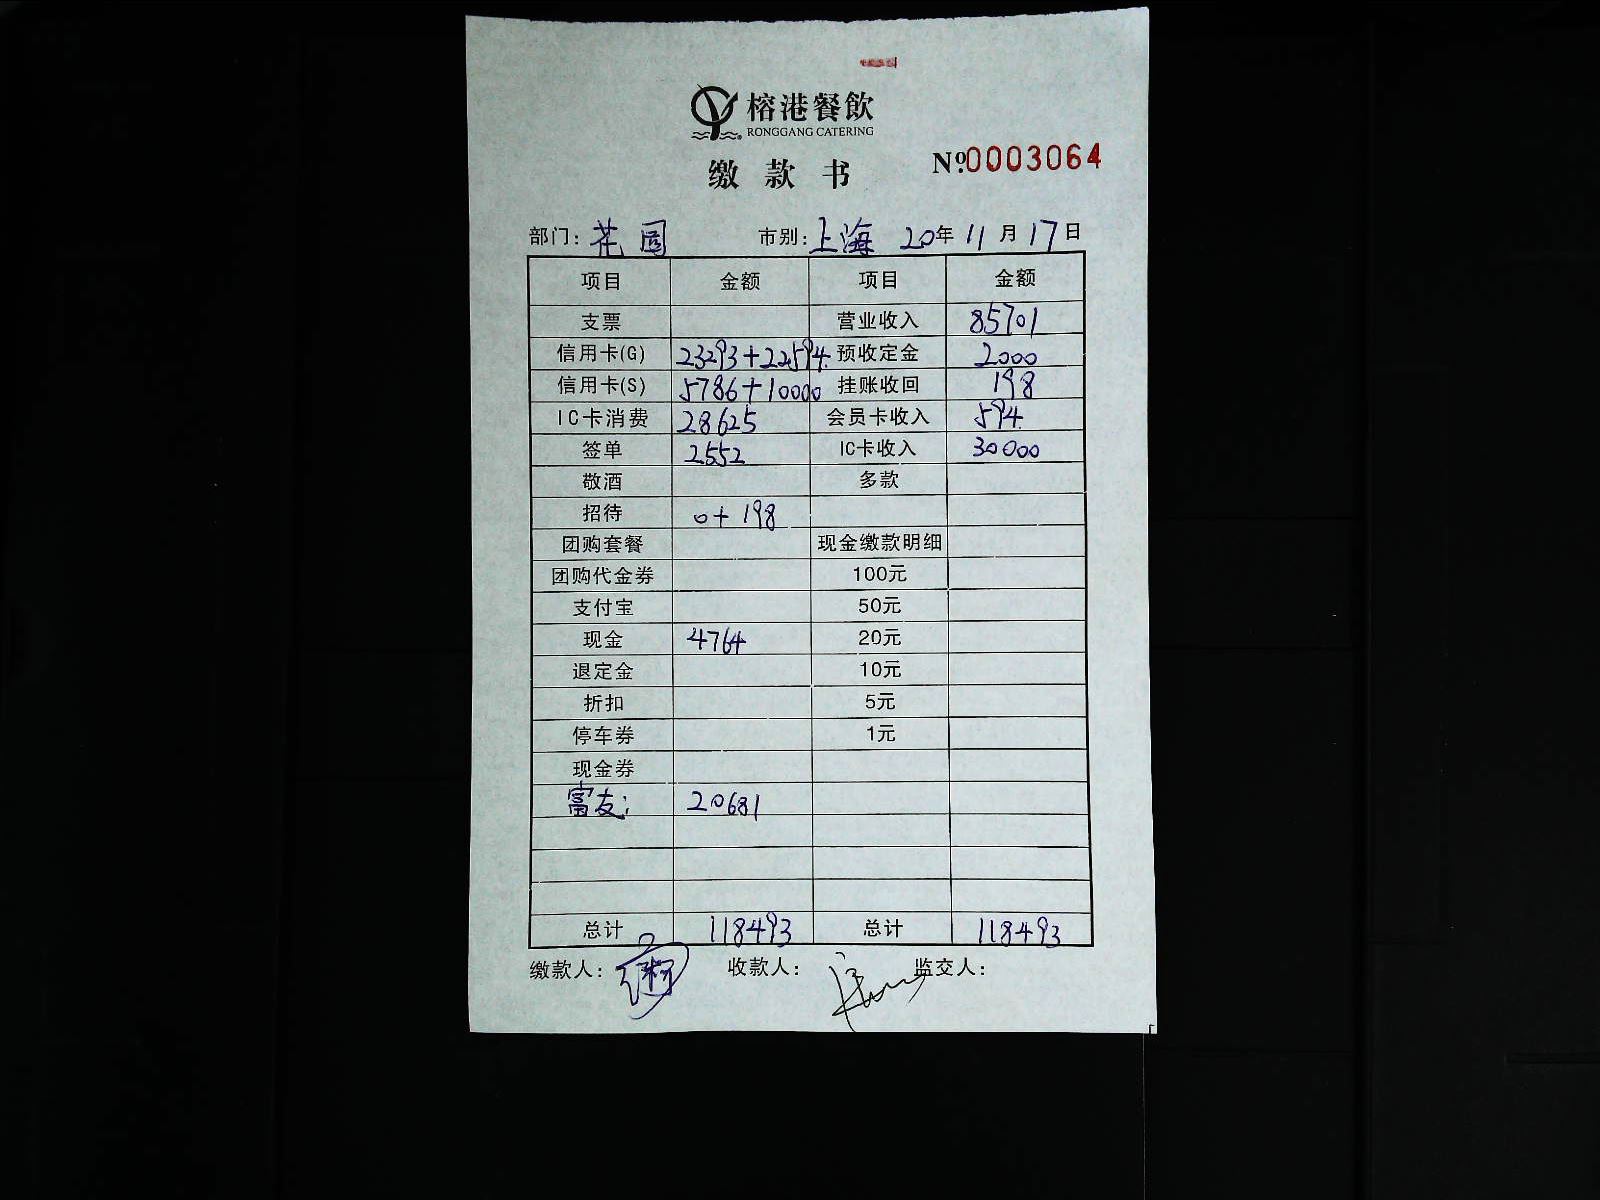 榕港餐飲
RONGGANG CATERING
缴款书 No.0003064
部门：花园 市别：上海 20年11月17日
项目 金额 项目 金额
支票 营业收入 85701
信用卡(G) 23293+22594 预收定金 2000
信用卡(S) 5786+10000 挂账收回 198
IC卡消费 28625 会员卡收入 594
签单 2552 IC卡收入 30000
敬酒 多款
招待 0+198
团购套餐 现金缴款明细
团购代金券 100元
支付宝 50元
现金 4764 20元
退定金 10元
折扣 5元
停车券 1元
现金券
富友： 20681
总计 118493 总计 118493
缴款人： 收款人： 监交人：